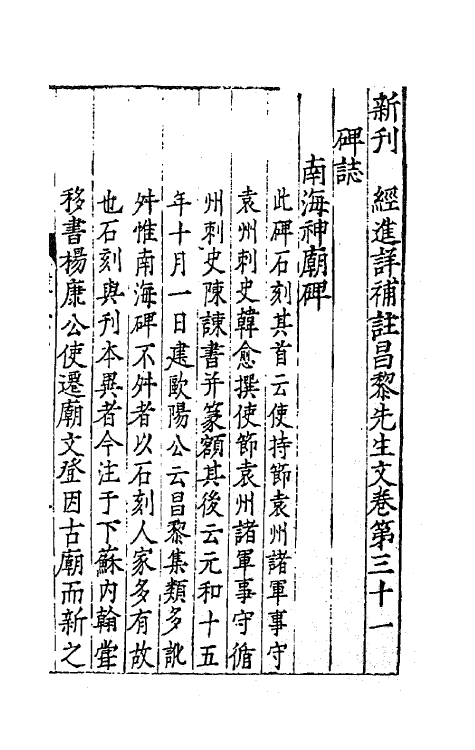 新刊 經進詳補註昌黎先生文卷第三十一
碑誌
南海神廟碑
此碑石刻其首云使持節袁州諸軍事守
袁州刺史韓愈撰使節袁州諸軍事守循
州刺史陳諫書并篆額其後云元和十五
年十月一日建歐陽公云昌黎集類多訛
舛惟南海碑不舛者以石刻人家多有故
也石刻與刊本異者今注于下蘇内翰嘗
移書楊康公使遷廟文登因古廟而新之